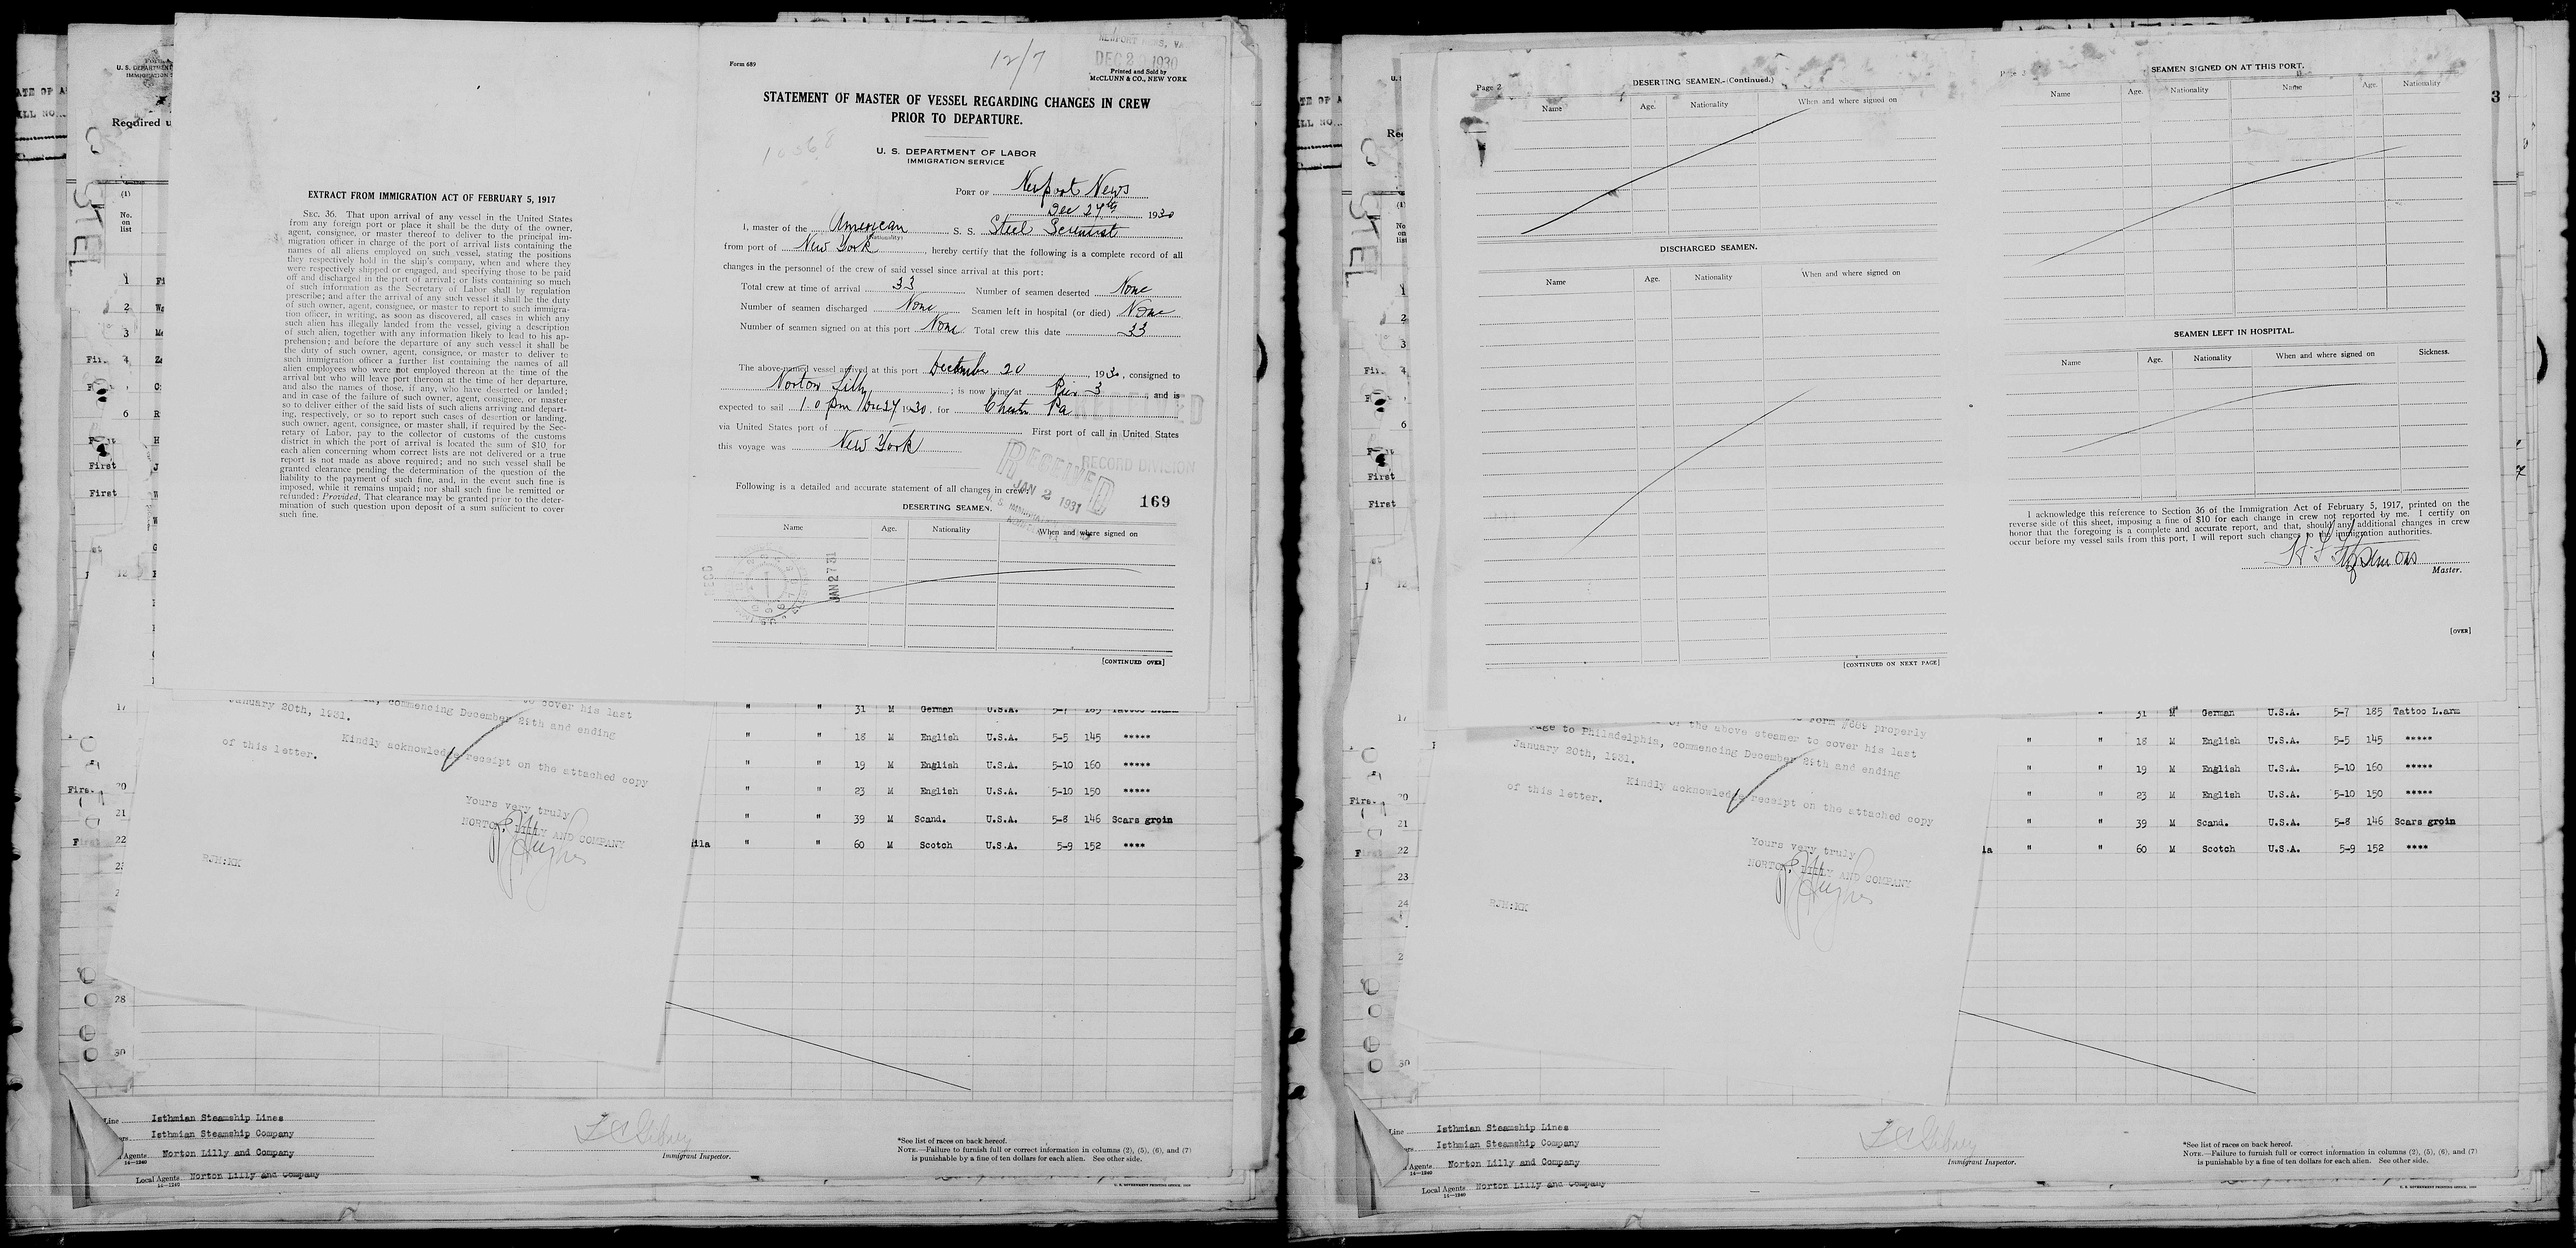 U. S. DEPARTMENT
IMMIGRATION S
Required u
(1)
No.
on
list
1
2
3
4
6
First
First
EXTRACT FROM IMMIGRATION ACT OF FEBRUARY 5, 1917
SEC. 36. That upon arrival of any vessel in the United States
from any foreign port or place it shall be the duty of the owner,
agent, consignee, or master thereof to deliver to the principal im-
migration officer in charge of the port of arrival lists containing the
names of all aliens employed on such vessel, stating the positions
they respectively hold in the ship's company, when and where they
were respectively shipped or engaged, and specifying those to be paid
off and discharged in the port of arrival; or lists containing so much
of such information as the Secretary of Labor shall by regulation
prescribe; and after the arrival of any such vessel it shall be the duty
of such owner, agent, consignee, or master to report to such immigra-
tion officer, in writing, as soon as discovered, all cases in which any
such alien has illegally landed from the vessel, giving a description
of such alien, together with any information likely to lead to his ap-
prehension; and before the departure of any such vessel it shall be
the duty of such owner, agent, consignee, or master to deliver to
such immigration officer a further list containing the names of all
alien employees who were not employed thereon at the time of the
arrival but who will leave port thereon at the time of her departure,
and also the names of those, if any, who have deserted or landed;
and in case of the failure of such owner, agent, consignee, or master
so to deliver either of the said lists of such aliens arriving and depart-
ing, respectively, or so to report such cases of desertion or landing,
such owner, agent, consignee, or master, shall, if required by the Sec-
retary of Labor, pay to the collector of customs of the customs
district in which the port of arrival is located the sum of $10 for
each alien concerning whom correct lists are not delivered or a true
report is not made as above required; and no such vessel shall be
granted clearance pending the determination of the question of the
liability to the payment of such fine, and, in the event such fine is
imposed, while it remains unpaid; nor shall such fine be remitted or
refunded: Provided, That clearance may be granted prior to the deter-
mination of such question upon deposit of a sum sufficient to cover
such fine.
Form 689
12/7
NEWPORT NEWS, VA.
DEC 2 1930
Printed and Sold by
McCLUNN & CO., NEW YORK
STATEMENT OF MASTER OF VESSEL REGARDING CHANGES IN CREW
PRIOR TO DEPARTURE.
U. S. DEPARTMENT OF LABOR
IMMIGRATION SERVICE
PORT OF Newport News
Dec 27th 1930
I, master of the American S. S. Steel Scientist
(Nationality)
from port of New York, hereby certify that the following is a complete record of all
changes in the personnel of the crew of said vessel since arrival at this port:
Total crew at time of arrival 33 Number of seamen deserted None
Number of seamen discharged None Seamen left in hospital (or died) None
Number of seamen signed on at this port None Total crew this date 33
The above-named vessel arrived at this port December 20, 1930, consigned to
Norton Lilly; is now lying at Pier 3, and is
expected to sail 1.0 pm Dec 27 1930. for Chester Pa
via United States port of First port of call in United States
this voyage was New York
RECEIVED
JAN 2 1931
RECORD DIVISION
169
Following is a detailed and accurate statement of all changes in crew:
DESERTING SEAMEN.
Name Age. Nationality When and where signed on
JAN 27 31
[CONTINUED OVER]
commencing December 29th and ending
January 20th, 1931.
Kindly acknowledge receipt on the attached copy
of this letter.
Yours very truly
NORTON, LILLY AND COMPANY
RJH:KK
" " 31 M German U.S.A. 5-7 185 Tattoo L.arm
" " 18 M English U.S.A. 5-5 145 *****
" " 19 M English U.S.A. 5-10 160 *****
" " 23 M English U.S.A. 5-10 150 *****
" " 39 M Scand. U.S.A. 5-8 146 Scars groin
" " 60 M Scotch U.S.A. 5-9 152 ****
17
20
21
22
28
30
Line Isthmian Steamship Lines
Isthmian Steamship Company
Agents Norton Lilly and Company
14—1240
Local Agents Norton Lilly and Company
14—1240
Immigrant Inspector.
*See list of races on back hereof.
NOTE.—Failure to furnish full or correct information in columns (2), (5), (6), and (7)
is punishable by a fine of ten dollars for each alien. See other side.
Page 2
DESERTING SEAMEN.-(Continued.)
Name Age. Nationality When and where signed on
DISCHARGED SEAMEN.
Name Age. Nationality When and where signed on
[CONTINUED ON NEXT PAGE]
SEAMEN SIGNED ON AT THIS PORT.
Name Age. Nationality Name Age. Nationality
3
SEAMEN LEFT IN HOSPITAL.
Name Age. Nationality When and where signed on Sickness.
I acknowledge this reference to Section 36 of the Immigration Act of February 5, 1917, printed on the
reverse side of this sheet, imposing a fine of $10 for each change in crew not reported by me. I certify on
honor that the foregoing is a complete and accurate report, and that, should any additional changes in crew
occur before my vessel sails from this port, I will report such changes to the immigration authorities.
Master.
[OVER]
of the above steamer to cover his last
to Philadelphia, commencing December 29th and ending
January 20th, 1931.
Kindly acknowledge receipt on the attached copy
of this letter.
Yours very truly
NORTON, LILLY AND COMPANY
RJH:KK
" 31 M German U.S.A. 5-7 185 Tattoo L.arm
" " 18 M English U.S.A. 5-5 145 *****
" " 19 M English U.S.A. 5-10 160 *****
" " 23 M English U.S.A. 5-10 150 *****
" " 39 M Scand. U.S.A. 5-8 146 Scars groin
" " 60 M Scotch U.S.A. 5-9 152 ****
17
20
21
22
23
24
30
Line Isthmian Steamship Lines
Isthmian Steamship Company
Agents Norton Lilly and Company
14—1240
Local Agents Norton Lilly and Company
14—1240
Immigrant Inspector.
*See list of races on back hereof.
NOTE.—Failure to furnish full or correct information in columns (2), (5), (6), and (7)
is punishable by a fine of ten dollars for each alien. See other side.